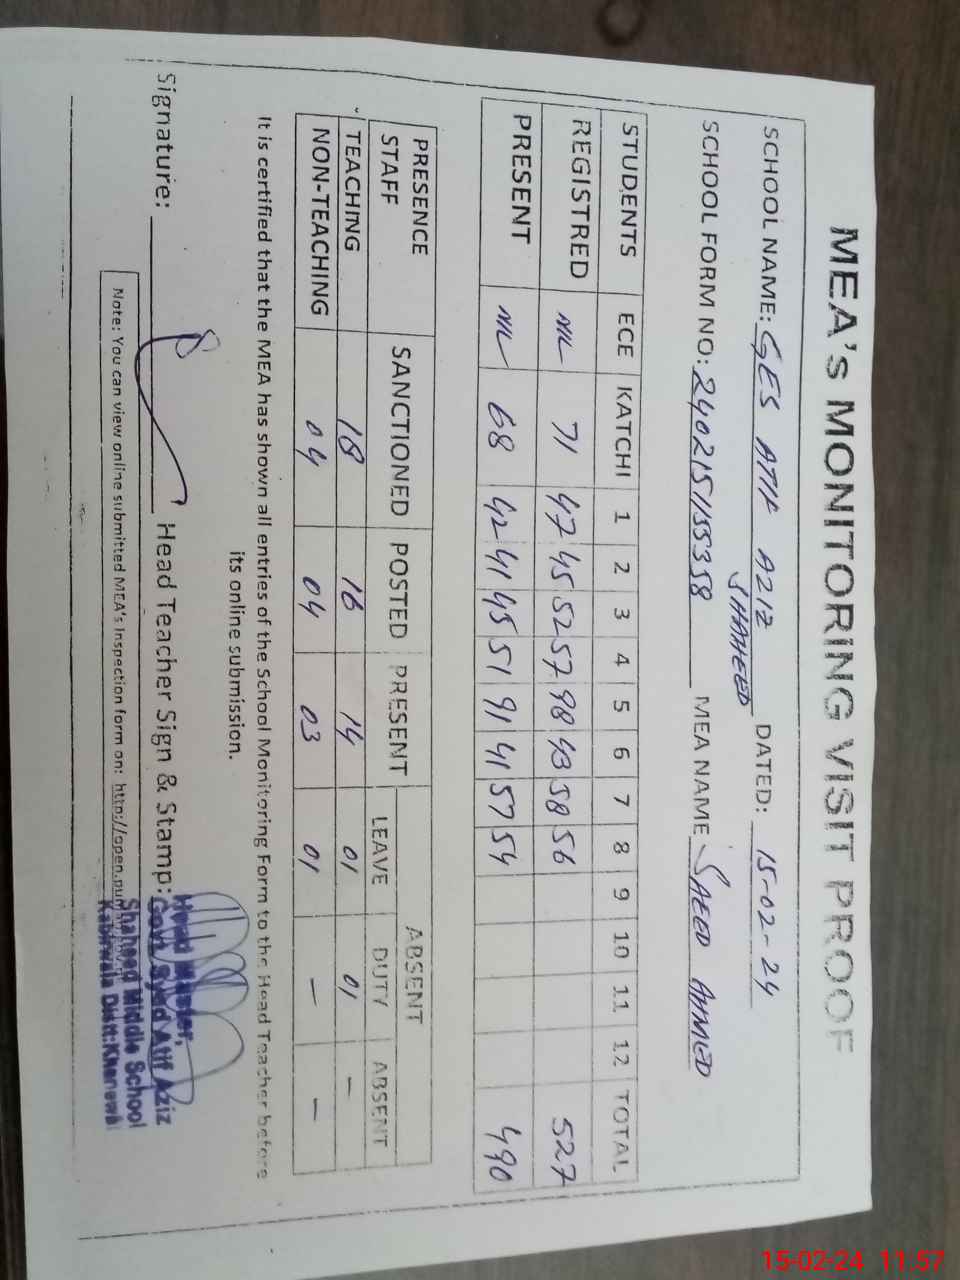 MEA's MONITORING VISIT PROOF
SCHOOL NAME: GES ATIF AZIZ SHAHEED DATED: 15-02-24
SCHOOL FORM NO: MEA NAME SAEED AHMED
STUDENTS ECE KATCHI 1 2 3 4 5 6 7 8 9 10 11 12 TOTAL
REGISTRED NIL 71 47 45 52 57 98 43 58 56 527
PRESENT NIL 68 42 41 45 51 91 41 57 54 490
PRESENCE STAFF SANCTIONED POSTED PRESENT ABSENT
LEAVE DUTY ABSENT
TEACHING 18 16 14 01 01 -
NON-TEACHING 04 04 03 01 - -
It is certified that the MEA has shown all entries of the School Monitoring Form to the Head Teacher before
its online submission.
Signature: Head Teacher Sign & Stamp:
Head Master,
Govt. Syed Atif Aziz
Shaheed Middle School
Kabirwala Distt: Khanewal
Note: You can view online submitted MEA's Inspection form on: http://open.
15-02-24 11:57